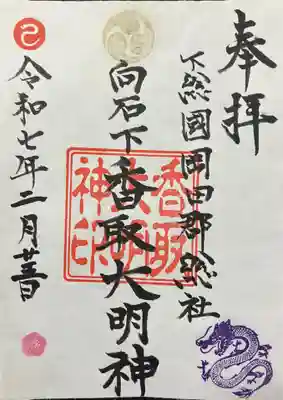 奉拝
下総國岡田郡総社
向石下香取大明神
香取大明神印
巳
令和七年二月